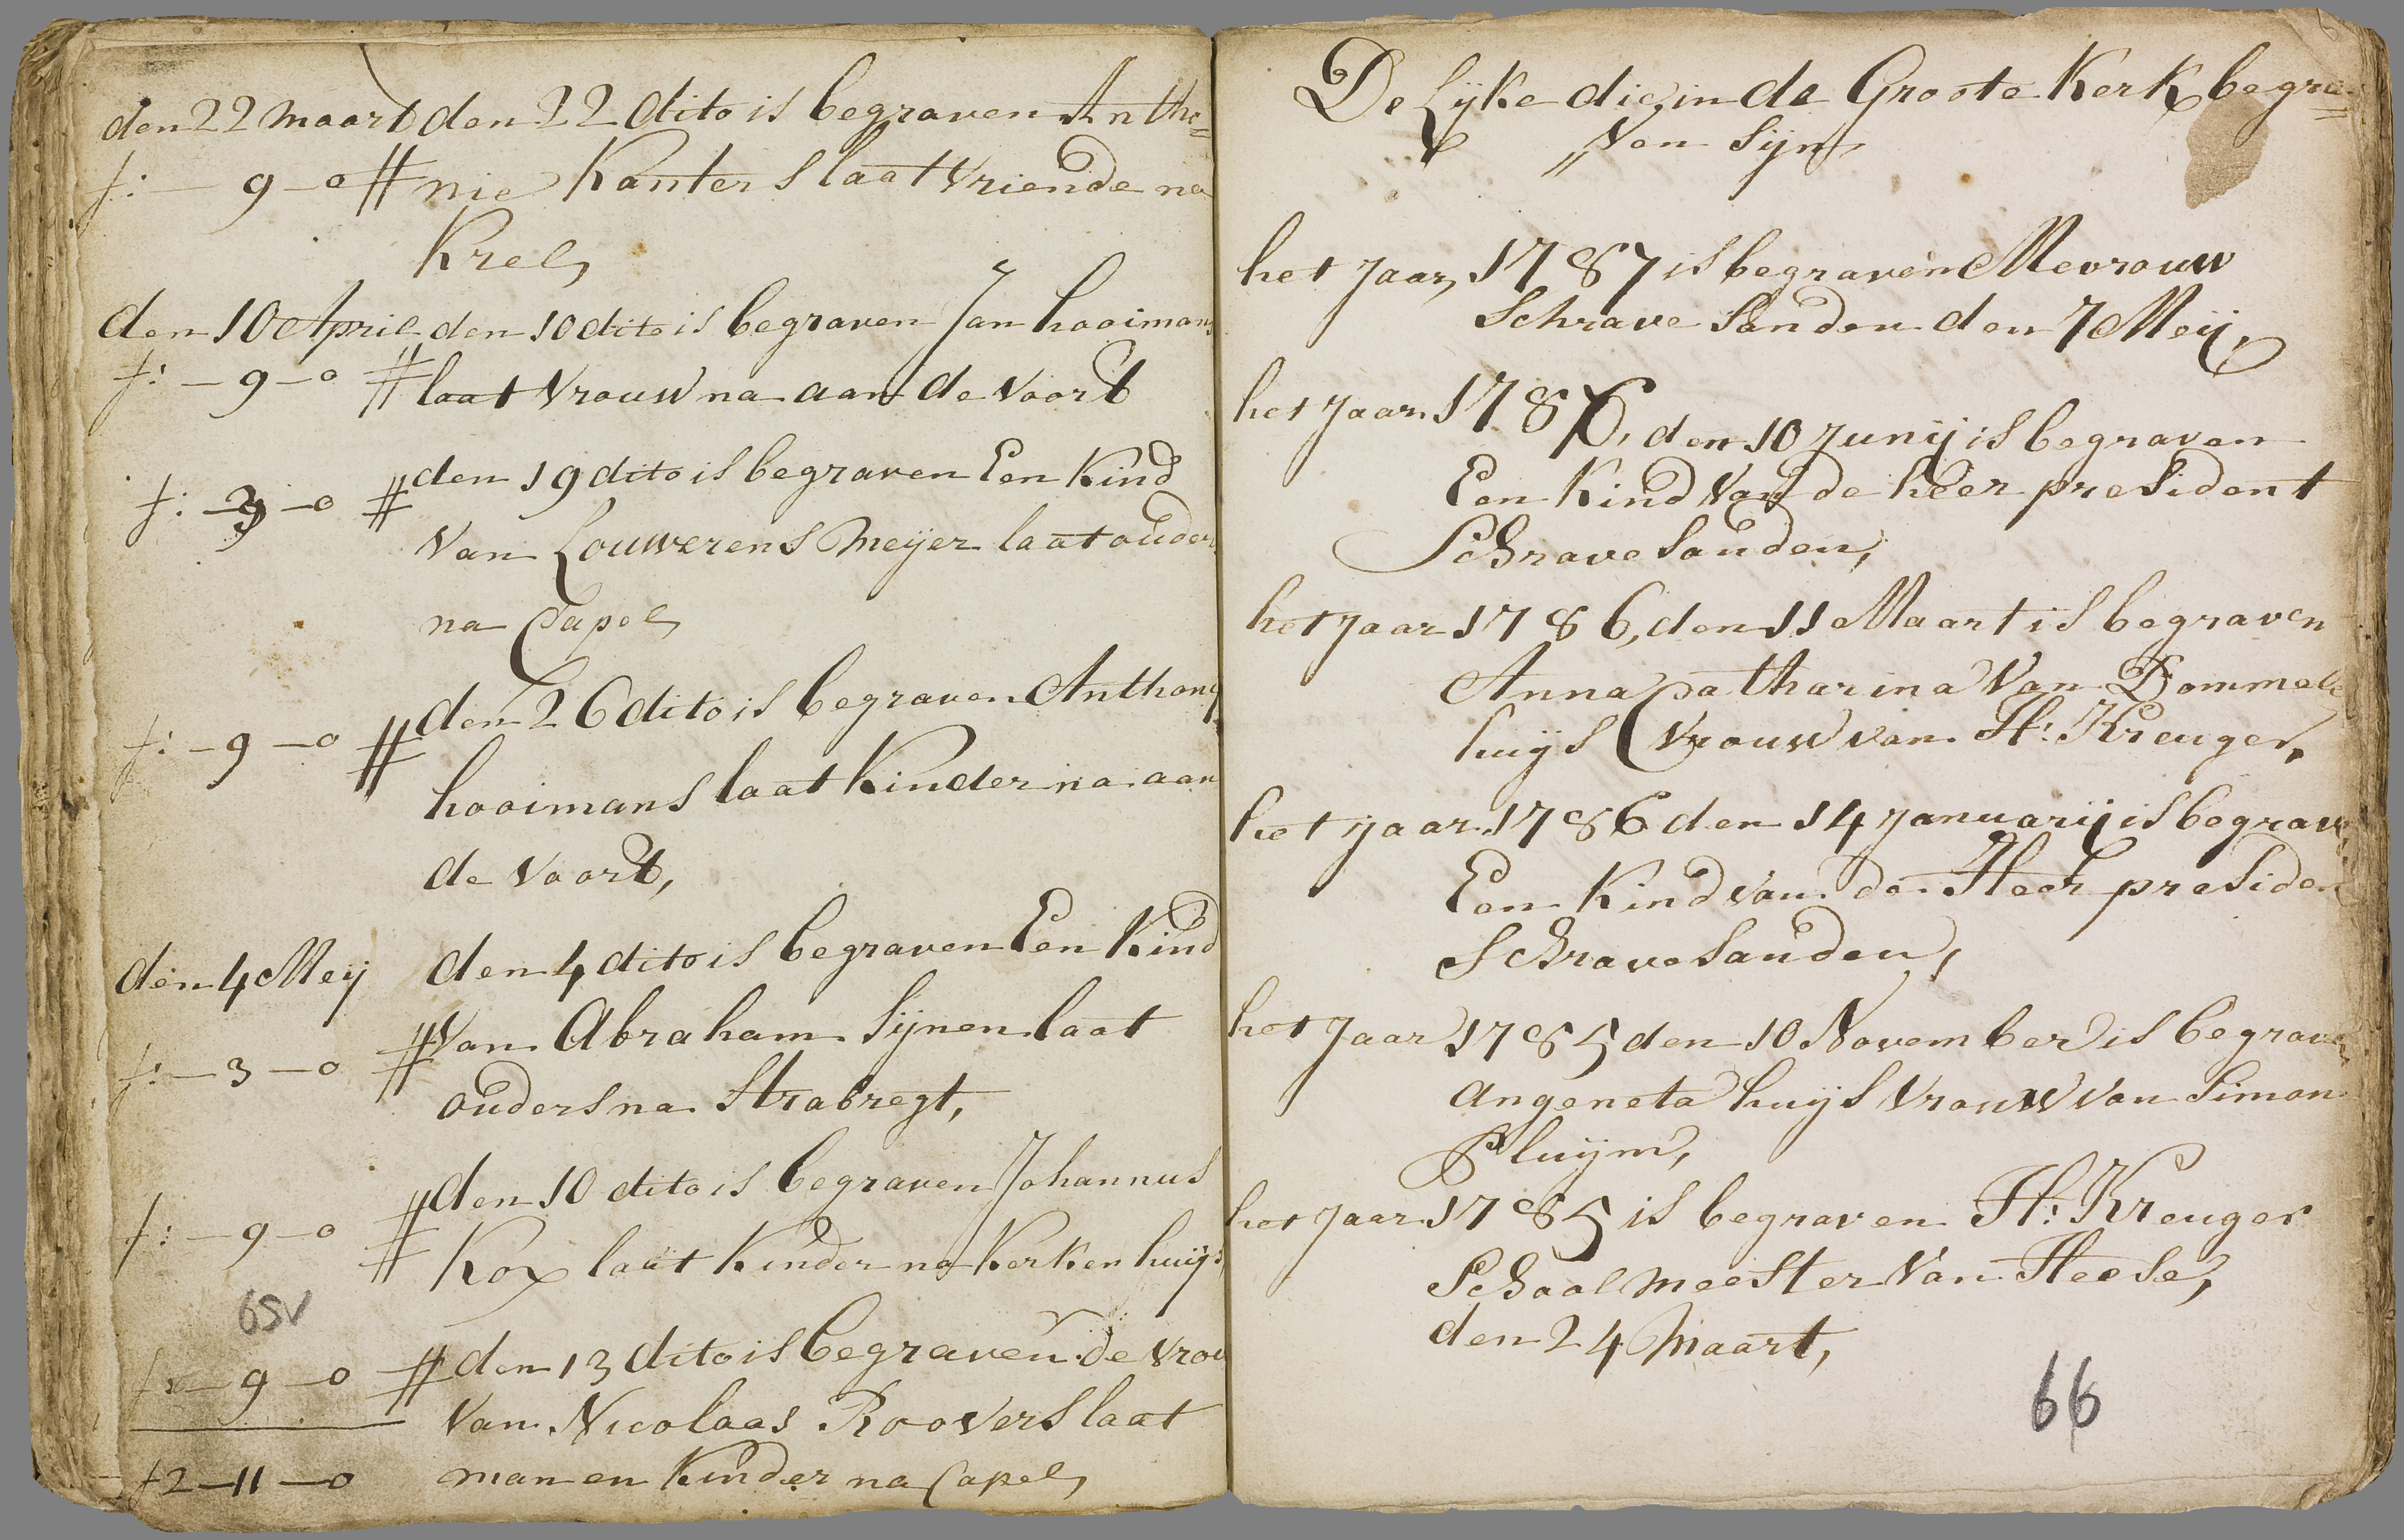 den 22 maart den 22 dito is begraven Antho=
f: — 9 — 0 # nie Kanters laat vriende na
Krel,
den 10 April den 10 dito is begraven Jan hooimans
f: — 9 — 0 # laat vrouw na aan de voort
f: — 3 — 0 # den 19 dito is begraven Een Kind
van Louwerens Meijer laat ouders
na Capel,
f: — 9 — 0 # den 26 dito is begraven Anthony
hooimans laat Kinder na aan
de voort,
den 4 Meij den 4 dito is begraven Een Kind
f: — 3 — 0 # van Abraham Sijnen laat
ouders na Strabregt,
f: — 9 — 0 # den 10 dito is begraven Johannus
Kox laat Kinder na Kerkenhuijs
65V
f: — 9 — 0 # den 13 dito is begraven de vrou
van Nicolaas Roovers laat
f 2 — 11 — 0 man en Kinder na Capel,
De Lijke die in de Groote Kerk begra=
ven Sijn,
het Jaar 1787 is begraven Mevrouw
Schrave Sanden den 7 Meij,
het Jaar 1786, den 10 Junij is begraven
Een Kind van de heer president
Schrave Sanden,
het Jaar 1786, den 11 Maart is begraven
Anna Catharina van Dommele
huijs vrouw van H: Kreuger,
het jaar 1786 den 14 Januarij is begrave
Een Kind van de Heer presiden
Schrave Sanden,
het Jaar 1785 den 10 November is begraven
angeneta huijs vrouw van Simon
Pluijm,
het Jaar 1785 is begraven H: Kreuger
Schoolmeester van Heese,
den 24 Maart,
66